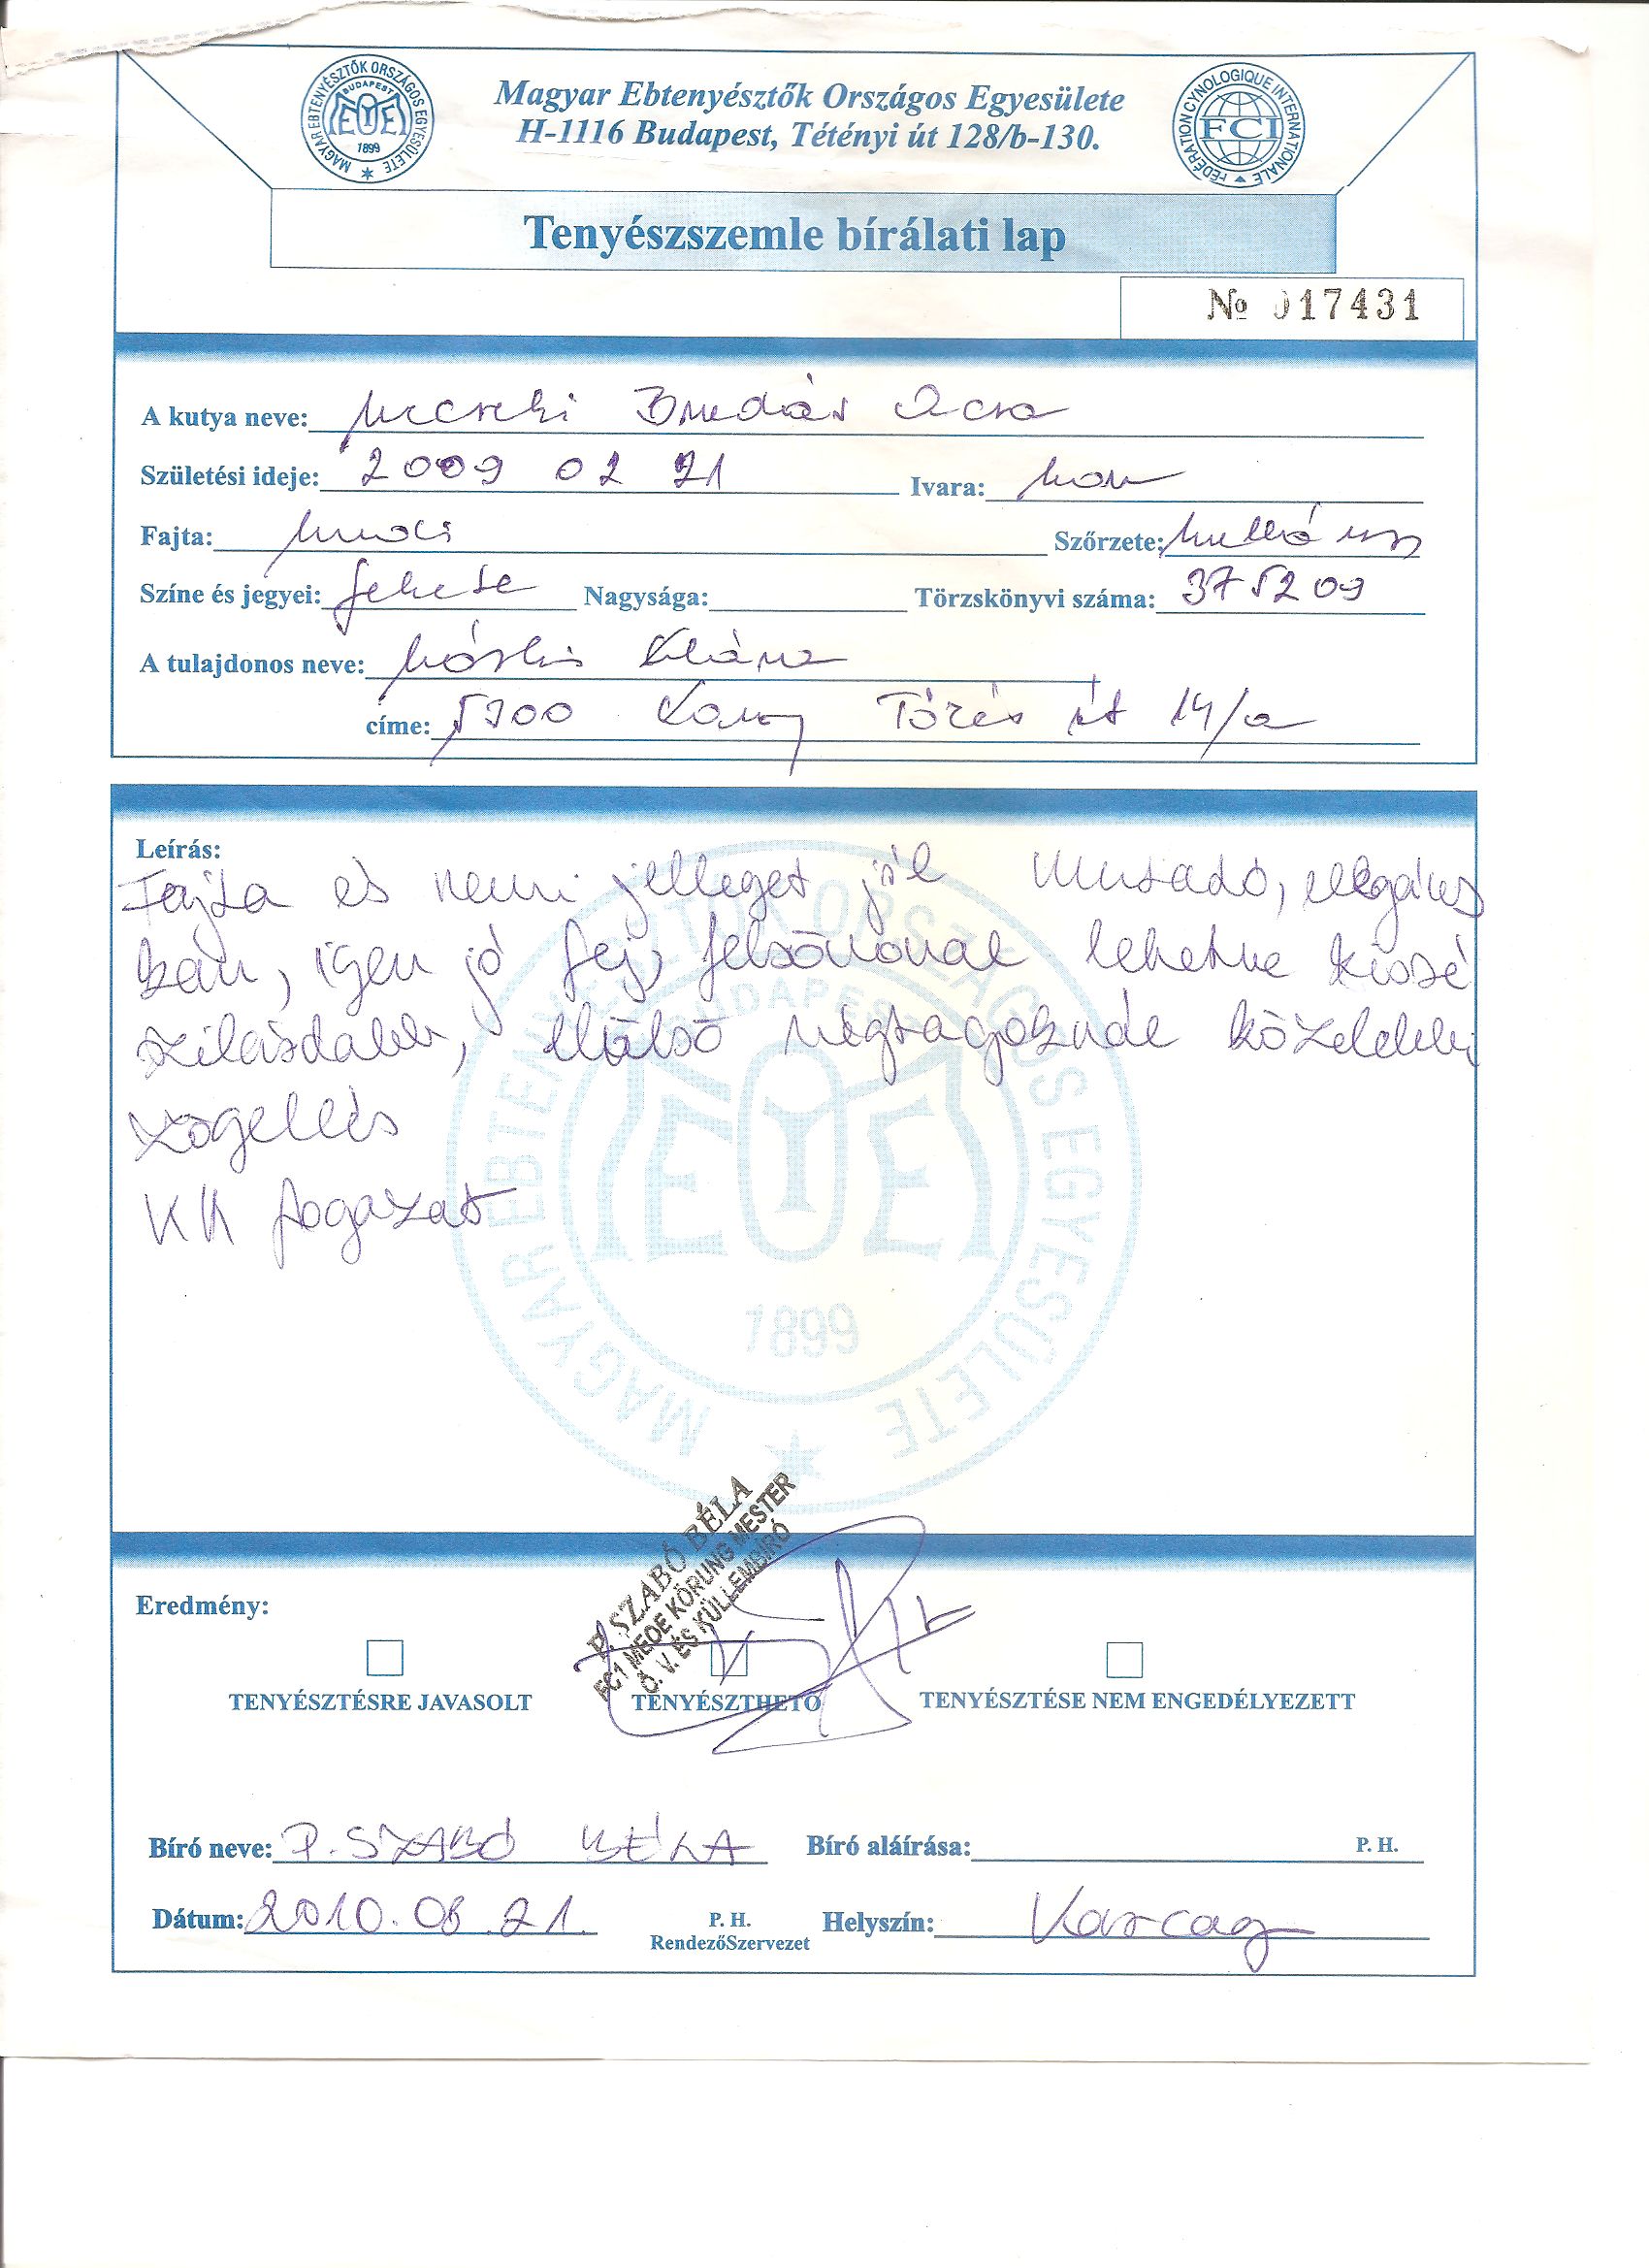 MAGYAR EBTENYÉSZTŐK ORSZÁGOS EGYESÜLETE
BUDAPEST
MEOE
1899
Magyar Ebtenyésztők Országos Egyesülete
H-1116 Budapest, Tétényi út 128/b-130.
FÉDÉRATION CYNOLOGIQUE INTERNATIONALE
FCI
Tenyészszemle bírálati lap
№ 017431
A kutya neve:
Születési ideje: 2009 02 21 Ivara: kan
Fajta: mudi Szőrzete:
Színe és jegyei: fekete Nagysága: Törzskönyvi száma: 375209
A tulajdonos neve: Klára
címe: 5300 út 14/a
Leírás:
Fajta és nemi jelleget jól mutató, elegáns
kan, igen jó fej, felsővonal lehetne kissé
szilárdabb, végtagoknál
szögellés
KK fogazat
MAGYAR EBTENYÉSZTŐK ORSZÁGOS EGYESÜLETE
BUDAPEST
MEOE
1899
Eredmény:
P. SZABÓ BÉLA
FCI MEOE KÖRUNG MESTER
Ö. V. ÉS KÜLLEMBÍRÓ
TENYÉSZTÉSRE JAVASOLT TENYÉSZTHETŐ TENYÉSZTÉSE NEM ENGEDÉLYEZETT
Bíró neve: P. SZABÓ BÉLA Bíró aláírása: P. H.
Dátum: 2010. 08. 21. P. H. Helyszín: Karcag
RendezőSzervezet